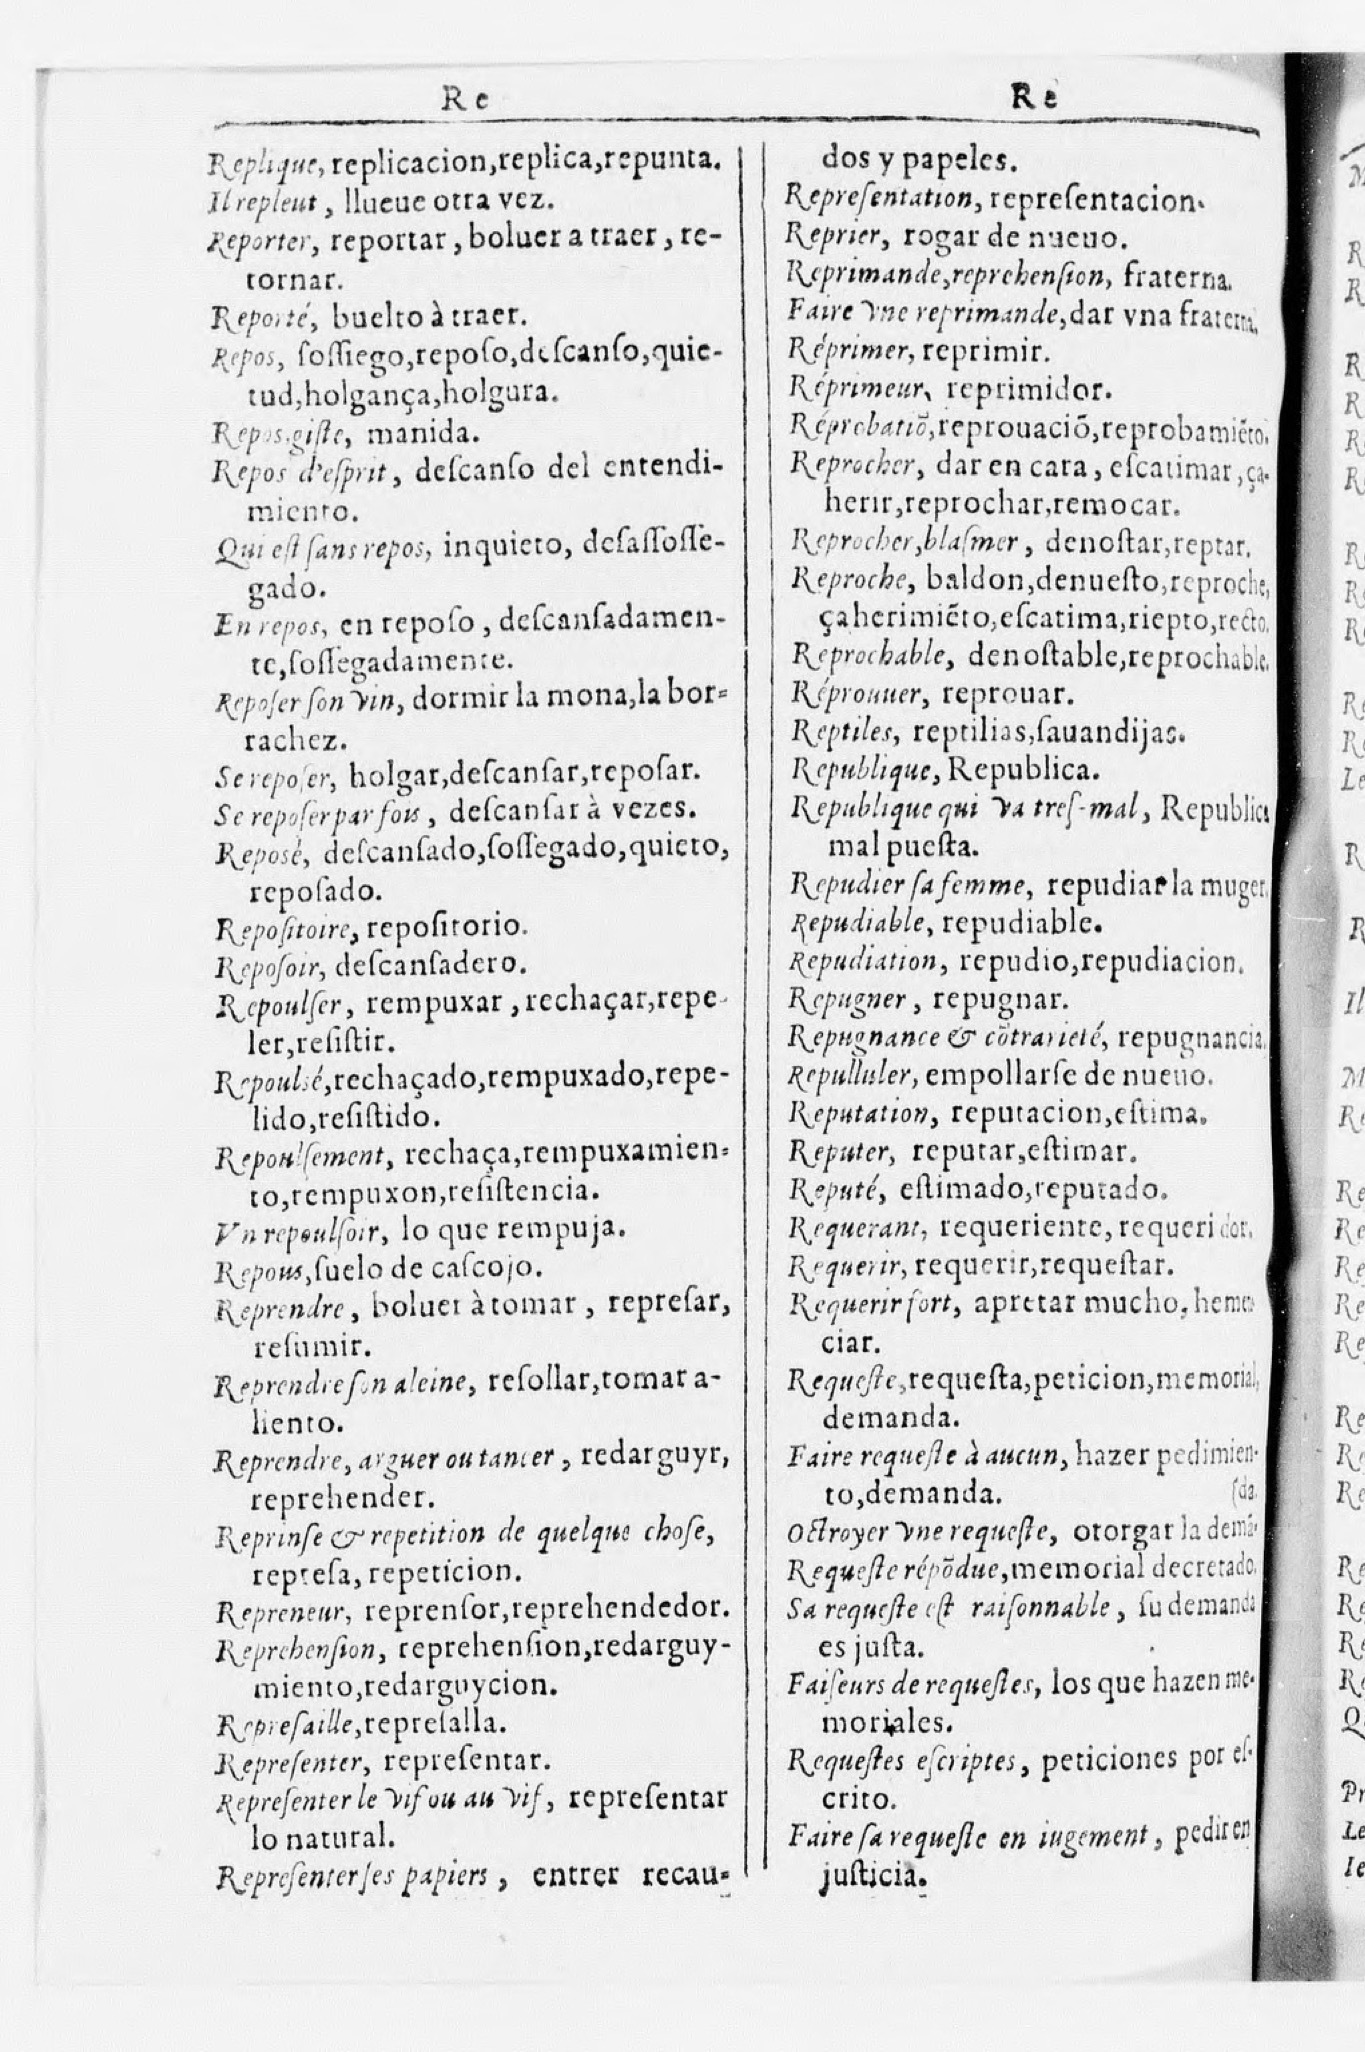 Re
Replique, replicacion,replica,repunta.
Il repleut, llueue otra vez.
Reporter, reportar, boluer a traer, re-
tornar.
Reporté, buelto à traer.
Repos, ſoſſiego,repoſo,deſcanſo,quie-
tud,holgança,holgura.
Repos,giſte, manida.
Repos d'eſprit, deſcanſo del entendi-
miento.
Qui eſt ſans repos, inquieto, deſaſſoſſe-
gado.
En repos, en repoſo, deſcanſadamen-
te,ſoſſegadamente.
Repoſer ſon vin, dormir la mona,la bor-
rachez.
Se repoſer, holgar,deſcanſar,repoſar.
Se repoſer par fois, deſcanſar à vezes.
Reposé, deſcanſado,ſoſſegado,quieto,
repoſado.
Repoſitoire, repoſitorio.
Repoſoir, deſcanſadero.
Repoulſer, rempuxar, rechaçar,repe-
ler,reſiſtir.
Repoulsé,rechaçado,rempuxado,repe-
lido,reſiſtido.
Repoulſement, rechaça,rempuxamien-
to,rempuxon,reſiſtencia.
Vn repoulſoir, lo que rempuja.
Repous,ſuelo de caſcojo.
Reprendre, boluer à tomar, repreſar,
reſumir.
Reprendre ſon aleine, reſollar,tomar a-
liento.
Reprendre, arguer ou tancer, redarguyr,
reprehender.
Reprinſe & repetition de quelque choſe,
repreſa, repeticion.
Repreneur, reprenſor,reprehendedor.
Reprehenſion, reprehenſion,redarguy-
miento,redarguycion.
Repreſaille,repreſalla.
Repreſenter, repreſentar.
Repreſenter le vif ou au vif, repreſentar
lo natural.
Repreſenter ſes papiers, entrer recau-
Re
dos y papeles.
Repreſentation, repreſentacion.
Reprier, rogar de nueuo.
Reprimande,reprehenſion, fraterna.
Faire vne reprimande,dar vna fraterna.
Réprimer, reprimir.
Réprimeur, reprimidor.
Réprobatiõ,reprouaciõ,reprobamiẽto.
Reprocher, dar en cara, eſcatimar, ça-
herir,reprochar,remocar.
Reprocher,blaſmer, denoſtar,reptar.
Reproche, baldon,denueſto,reproche,
çaherimiẽto,eſcatima,riepto,recto.
Reprochable, denoſtable,reprochable.
Réprouuer, reprouar.
Reptiles, reptilias,ſauandijas.
Republique, Republica.
Republique qui va treſ-mal, Republica
mal pueſta.
Repudier ſa femme, repudiar la muger.
Repudiable, repudiable.
Repudiation, repudio,repudiacion.
Repugner, repugnar.
Repugnance & cõtrarieté, repugnancia.
Repulluler, empollarſe de nueuo.
Reputation, reputacion,eſtima.
Reputer, reputar,eſtimar.
Reputé, eſtimado,reputado.
Requerant, requeriente, requeridor.
Requerir, requerir,requeſtar.
Requerir fort, apretar mucho, hemen
ciar.
Requeſte,requeſta,peticion,memorial,
demanda.
Faire requeſte à aucun, hazer pedimien-
to,demanda. (da.
Octroyer vne requeſte, otorgar la demã-
Requeſte répõdue,memorial decretado.
Sa requeſte eſt raiſonnable, ſu demanda
es juſta.
Faiſeurs de requeſtes, los que hazen me-
moriales.
Requeſtes eſcriptes, peticiones por eſ-
crito.
Faire ſa requeſte en iugement, pedir en
juſticia.